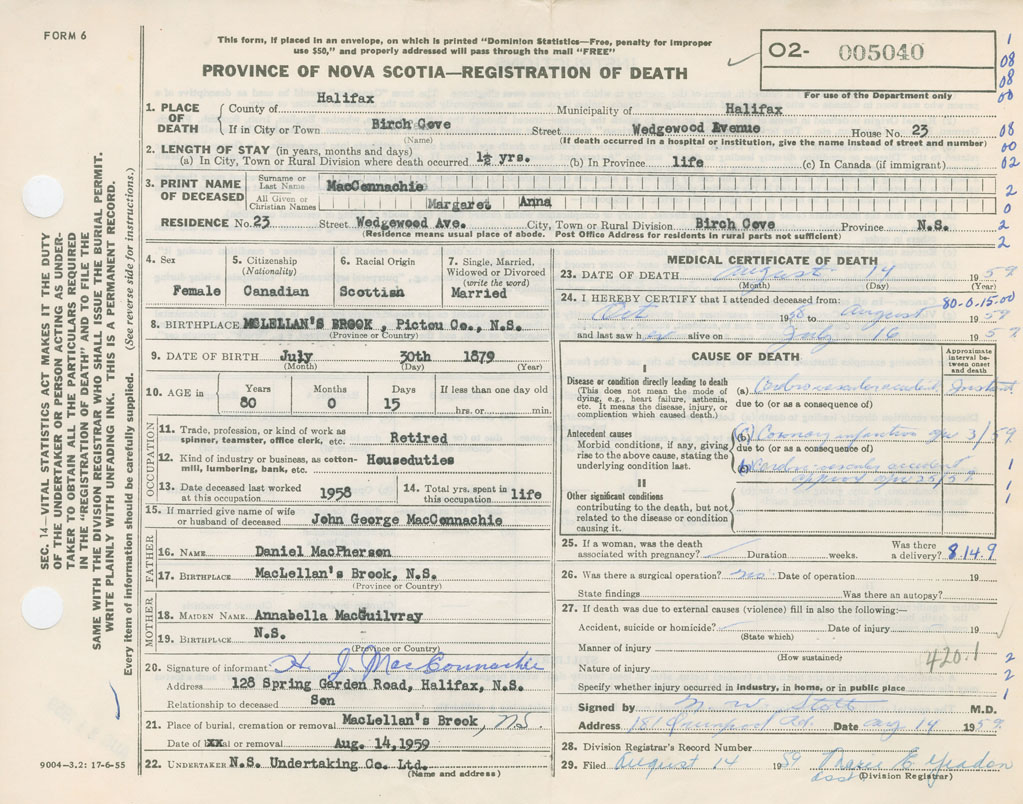 FORM 6
This form, if placed in an envelope, on which is printed "Dominion Statistics—Free, penalty for improper
use $50," and properly addressed will pass through the mail "FREE"
PROVINCE OF NOVA SCOTIA—REGISTRATION OF DEATH
O2- 005040
For use of the Department only
1
08
08
00
08
00
02
2
0
2
2
1. PLACE OF DEATH
County of Halifax Municipality of Halifax
If in City or Town Birch Cove Street Wedgewood Avenue House No. 23
(Name) (If death occurred in a hospital or institution, give the name instead of street and number)
2. LENGTH OF STAY (in years, months and days)
(a) In City, Town or Rural Division where death occurred 1½ yrs. (b) In Province life (c) In Canada (if immigrant)
3. PRINT NAME OF DECEASED
Surname or Last Name MacConnachie
All Given or Christian Names Margaret Anna
RESIDENCE No. 23 Street Wedgewood Ave. City, Town or Rural Division Birch Cove Province N.S.
(Residence means usual place of abode. Post Office Address for residents in rural parts not sufficient)
4. Sex
Female
5. Citizenship
(Nationality)
Canadian
6. Racial Origin
Scottish
7. Single, Married,
Widowed or Divorced
(write the word)
Married
8. BIRTHPLACE MCLELLAN'S BROOK, Pictou Co., N.S.
(Province or Country)
9. DATE OF BIRTH July 30th 1879
(Month) (Day) (Year)
10. AGE in
Years Months Days If less than one day old
80 0 15 hrs. or min.
OCCUPATION
11. Trade, profession, or kind of work as
spinner, teamster, office clerk, etc. Retired
12. Kind of industry or business, as cotton-
mill, lumbering, bank, etc. Houseduties
13. Date deceased last worked
at this occupation 1958
14. Total yrs. spent in
this occupation life
15. If married give name of wife
or husband of deceased John George MacConnachie
FATHER
16. NAME Daniel MacPherson
17. BIRTHPLACE MacLellan's Brook, N.S.
(Province or Country)
MOTHER
18. MAIDEN NAME Annabella MacGuilvray
19. BIRTHPLACE N.S.
(Province or Country)
20. Signature of informant H. J. MacConnachie
Address 128 Spring Garden Road, Halifax, N.S.
Relationship to deceased Son
21. Place of burial, cremation or removal MacLellan's Brook, NS.
Date of or removal Aug. 14, 1959
22. UNDERTAKER N.S. Undertaking Co. Ltd.
(Name and address)
9004—3.2: 17-6-55
MEDICAL CERTIFICATE OF DEATH
23. DATE OF DEATH August 14 1959
(Month) (Day) (Year)
24. I HEREBY CERTIFY that I attended deceased from: 80-0-15.00
Oct 1958 to August 1959
and last saw her alive on July 16 1959
CAUSE OF DEATH
Approximate interval between onset and death
I
Disease or condition directly leading to death
(This does not mean the mode of
dying, e.g., heart failure, asthenia,
etc. It means the disease, injury, or
complication which caused death.)
(a) Instant
due to (or as a consequence of)
Antecedent causes
Morbid conditions, if any, giving
rise to the above cause, stating the
underlying condition last.
(b) Coronary infarction 3/59
due to (or as a consequence of)
accident
approx
1
1
1
II
Other significant conditions
contributing to the death, but not
related to the disease or condition
causing it.
25. If a woman, was the death
associated with pregnancy? Duration weeks. Was there
a delivery? 814.9
26. Was there a surgical operation? no Date of operation 19
State findings Was there an autopsy?
27. If death was due to external causes (violence) fill in also the following:—
Accident, suicide or homicide? Date of injury 19
(State which)
Manner of injury 420.1
(How sustained)
Nature of injury
2
2
1
Specify whether injury occurred in industry, in home, or in public place
Signed by M. W. Stott M.D.
Address 181 Rd. Date Aug 14 1959
28. Division Registrar's Record Number
29. Filed August 14 1959 Marie E Yeadon
asst (Division Registrar)
SEC. 14—VITAL STATISTICS ACT MAKES IT THE DUTY
OF THE UNDERTAKER OR PERSON ACTING AS UNDER-
TAKER TO OBTAIN ALL THE PARTICULARS REQUIRED
IN THE "REGISTRATION OF DEATH" AND TO FILE THE
SAME WITH THE DIVISION REGISTRAR WHO SHALL ISSUE THE BURIAL PERMIT.
WRITE PLAINLY WITH UNFADING INK. THIS IS A PERMANENT RECORD.
Every item of information should be carefully supplied. (See reverse side for instructions.)